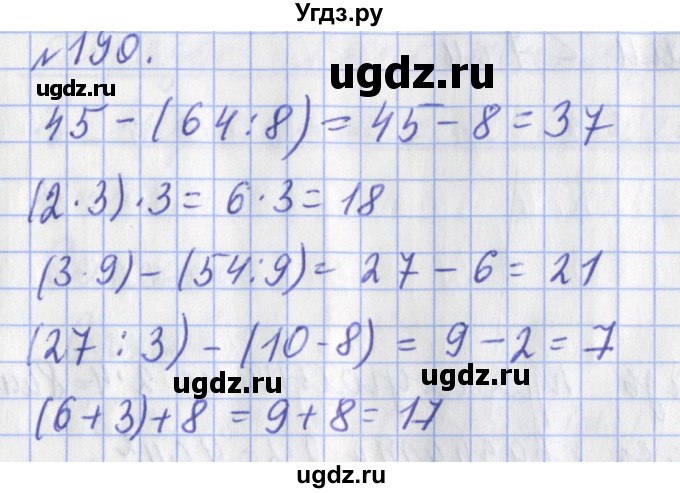 Угдз.ру
№190.
ugdz.ru
ugdz.ru
45 - (64:8) = 45 - 8 = 37
(2·3)·3 = 6·3 = 18
(3·9) - (54:9) = 27 - 6 = 21
(27:3) - (10-8) = 9 - 2 = 7
ugdz.ru
ugdz.ru
(6+3)+8 = 9+8 = 17
ugdz.ru